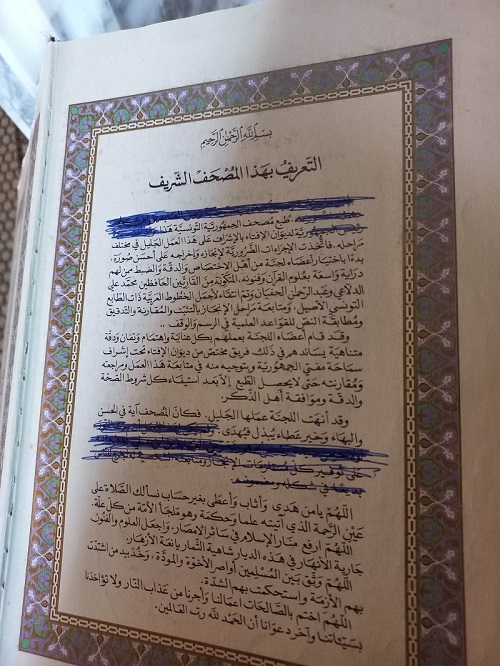 بسم الله الرحمن الرحيم
التعريف بهذا المصحف الشريف
طبع مصحف الجمهورية التونسية
لديوان الإفتاء بالإشراف على هذا العمل الجليل في مختلف
مراحله. فاتخذت الإجراءات الضرورية لإنجازه وإخراجه على أحسن صورة،
بدءا باختيار أعضاء لجنة من أهل الاختصاص والدقة والضبط ممن لهم
دراية واسعة بعلوم القرآن وفنونه، المتكونة من القارئين الحافظين محمد علي
الدلاعي وعبد الرحمن الحفيان وتم انتقاء لأجمل الخطوط العربية ذات الطابع
التونسي الأصيل، ومتابعة مراحل الإنجاز بالتثبت والمقارنة والتدقيق
ومطابقة النص للقواعد العلمية في الرسم والوقف ..
وقد قام أعضاء اللجنة بعملهم بكل عناية واهتمام وتفان ودقة
متناهية يساندهم في ذلك فريق مختص من ديوان الإفتاء تحت إشراف
سماحة مفتي الجمهورية وبتوجيه منه في متابعة هذا العمل ومراجعته
ومقارنته حتى لا يحصل الطبع إلا بعد استيفاء كل شروط الصحة
والدقة وموافقة أهل الذكر.
وقد أنهت اللجنة عملها الجليل. فكان المصحف آية في الحسن
والبهاء وخير عطاء يبذل فيهدى
على توفير كل مستلزمات الإنجاز
في شكله
اللهم يا من هدى وأثاب وأعطى بغير حساب نسألك الصلاة على
عين الرحمة الذي آتيته علما وحكمة وهو ملجأ الأمة من كل علة.
اللهم ارفع منار الإسلام في سائر الأمصار، واجعل العلوم والفنون
جارية الأنهار في هذه الديار شاهية الثمار يانعة الأزهار.
اللهم وثق بين المسلمين أواصر الأخوة والمودة، وخذ بيد من اشتدت
بهم الأزمة واستحكمت بهم الشدة.
اللهم اختم بالصالحات أعمالنا وأجرنا من عذاب النار ولا تؤاخذنا
بسيئاتنا وآخر دعوانا أن الحمد لله رب العالمين.